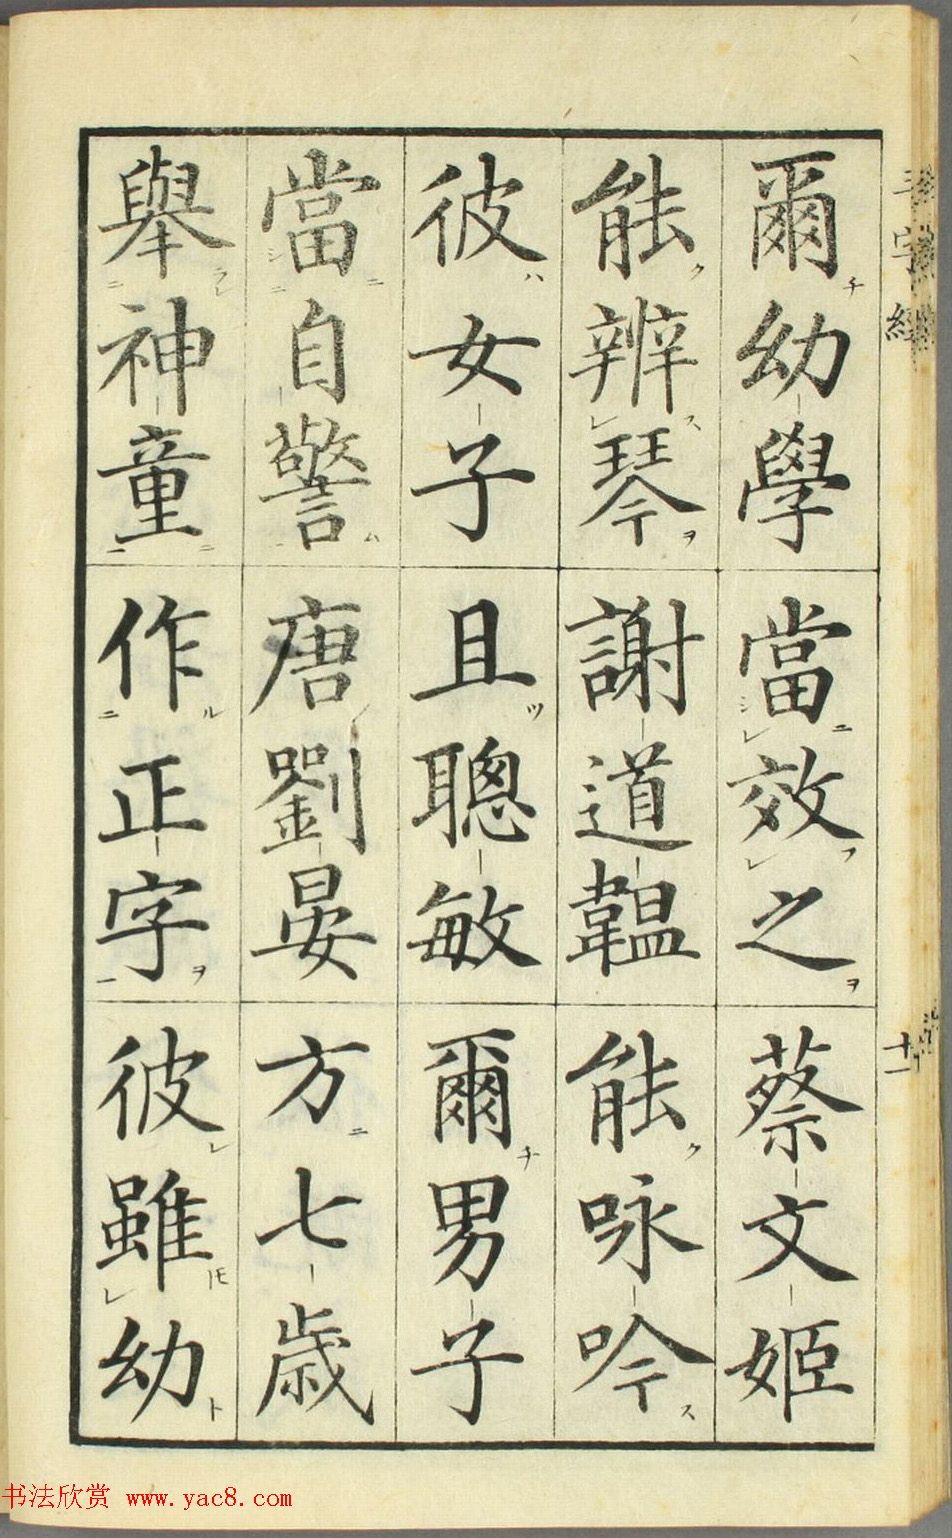 爾幼學當效之蔡文姬
能辨琴謝道韞能咏吟
彼女子且聰敏爾男子
當自警唐劉晏方七歲
舉神童作正字彼雖幼
三字經
十一
书法欣赏 www.yac8.com